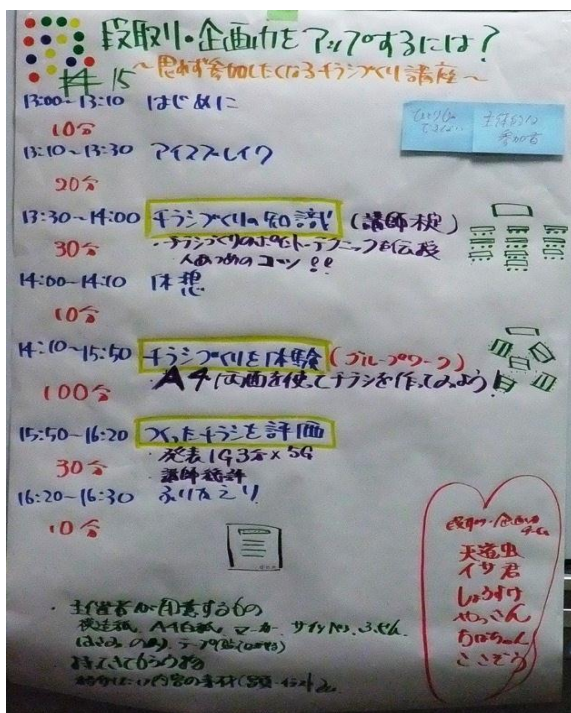 段取り・企画力をアップするには?
~思わず参加したくなるチラシづくり講座~
15
13:00~13:10 はじめに
10分
13:10~13:30 アイスブレイク
20分
主体的な
参加者
13:30~14:00 チラシづくりの知識 (講師未定)
30分
・チラシづくりのポイント・テクニックを伝授
人あつめのコツ!!
14:00~14:10 休憩
10分
14:10~15:50 チラシづくりを体験 (グループワーク)
100分
・A4 画を使ってチラシを作ってみよう!
15:50~16:20 つくったチラシを評価
30分
・発表1G3分×5G
・講師総評
16:20~16:30 ふりかえり
10分
段取り・企画力
チーム
天道虫
イサ君
しょうすけ
やっさん
ちはちゃん
ここぞう
・主催者が用意するもの
模造紙、A4白紙、マーカー、サインペン、ふせん
はさみ、のり、テープ
持ってきてもらう物
内容の素材(写真・イラスト)